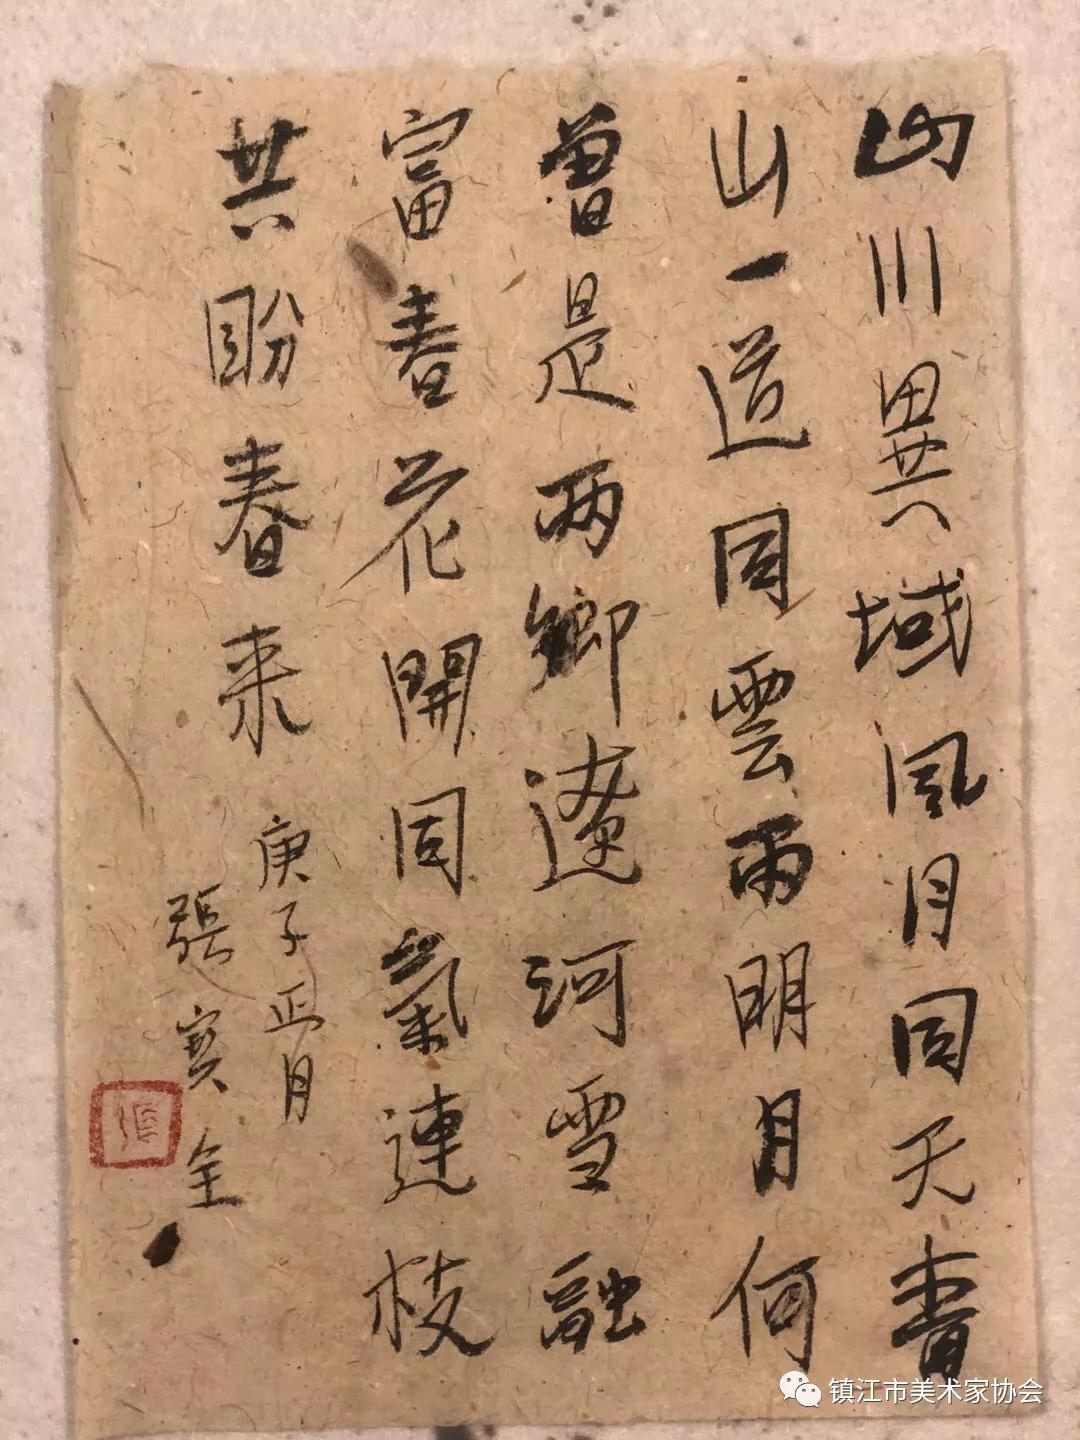 山川異域風月同天青
山一道同雲雨明月何
曾是两鄉遼河雪融
富春花開同氣連枝
共盼春来
庚子正月
張寶全
镇江市美术家协会